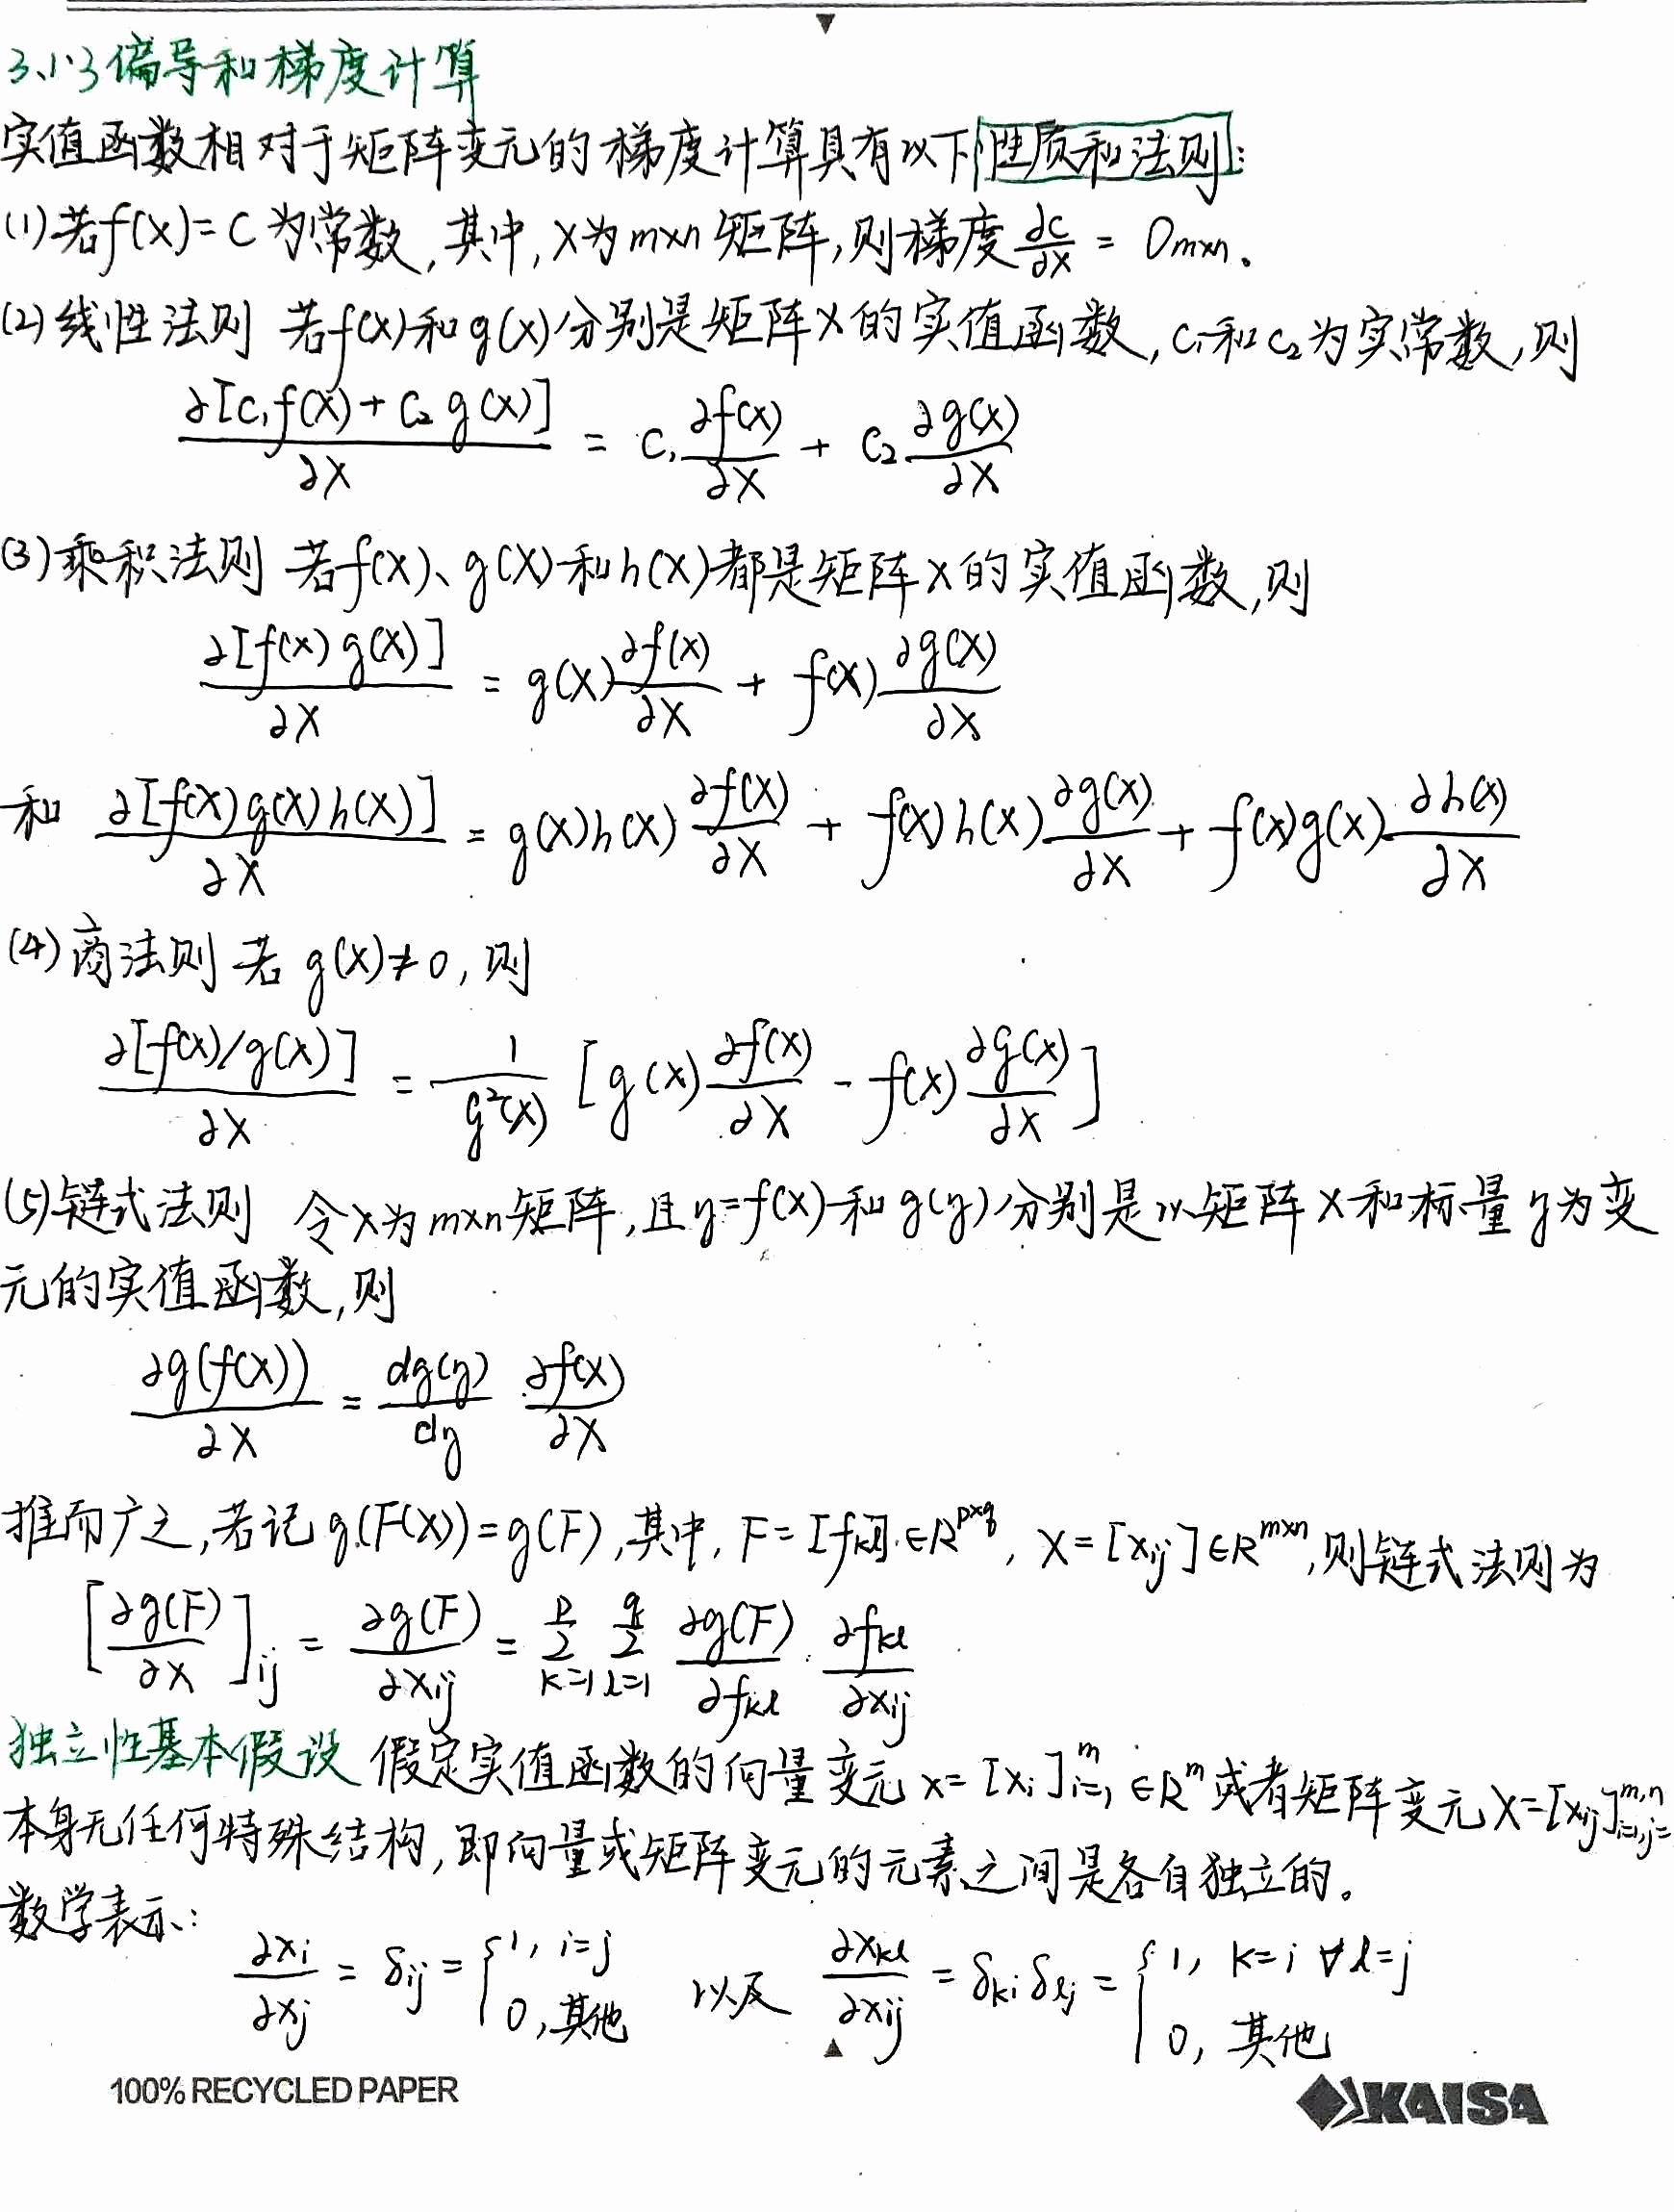 3.1.3 偏导和梯度计算
实值函数相对于矩阵变元的梯度计算具有以下性质和法则:
(1) 若f(X)=C为常数,其中,X为m×n矩阵,则梯度 ∂c/∂X = O_{m×n}。
(2) 线性法则 若f(X)和g(X)分别是矩阵X的实值函数,C₁和C₂为实常数,则
∂[C₁f(X)+C₂g(X)]/∂X = C₁ ∂f(X)/∂X + C₂ ∂g(X)/∂X
(3) 乘积法则 若f(X)、g(X)和h(X)都是矩阵X的实值函数,则
∂[f(X)g(X)]/∂X = g(X) ∂f(X)/∂X + f(X) ∂g(X)/∂X
和 ∂[f(X)g(X)h(X)]/∂X = g(X)h(X) ∂f(X)/∂X + f(X)h(X) ∂g(X)/∂X + f(X)g(X) ∂h(X)/∂X
(4) 商法则 若 g(X)≠0,则
∂[f(X)/g(X)]/∂X = 1/g²(X) [g(X) ∂f(X)/∂X - f(X) ∂g(X)/∂X]
(5) 链式法则 令X为m×n矩阵,且y=f(X)和g(y)分别是以矩阵X和标量y为变
元的实值函数,则
∂g(f(X))/∂X = dg(y)/dy ∂f(X)/∂X
推而广之,若记g(F(X))=g(F),其中,F=[f_{kl}]∈R^{p×q}, X=[x_{ij}]∈R^{m×n},则链式法则为
[∂g(F)/∂X]_{ij} = ∂g(F)/∂x_{ij} = Σ_{k=1}^{p} Σ_{l=1}^{q} ∂g(F)/∂f_{kl} ∂f_{kl}/∂x_{ij}
独立性基本假设 假定实值函数的向量变元 x=[x_i]_{i=1}^{m}∈R^m或者矩阵变元X=[x_{ij}]_{i=1,j=}^{m,n}
本身无任何特殊结构,即向量或矩阵变元的元素之间是各自独立的。
数学表示:
∂x_i/∂x_j = δ_{ij} = {1, i=j 0,其他 以及 ∂x_{kl}/∂x_{ij} = δ_{ki}δ_{lj} = {1, k=i ∀ l=j 0, 其他
100% RECYCLED PAPER
KAISA